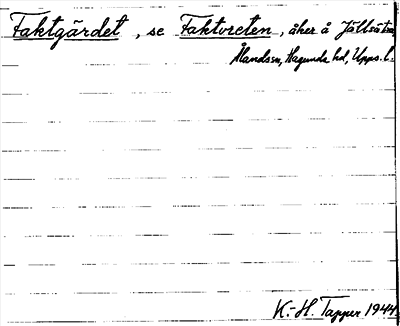 Faktgärdet, se Faktvreten, åker å Jällsätra,
Ålandssn, Hagunda hd, Upps. l.
K.-H. Tapper 1944